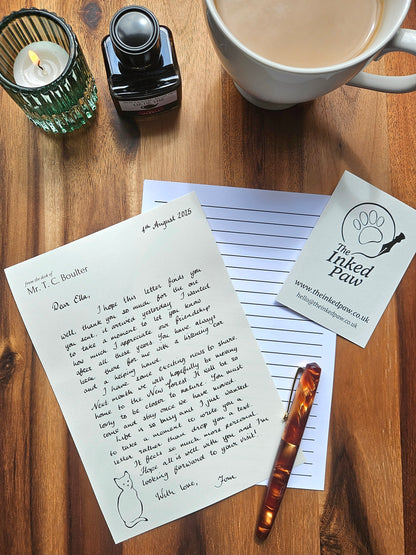 4th August 2025
from the desk of
Mr. T. C. Boulter
Dear Ella,
I hope this letter finds you
well, thank you so much for the one
you sent, it arrived yesterday. I wanted
to let you know
how much I appreciate our friendship
after all these years. You have always
been there for me with a listening ear
and a helping hand.
I have some exciting news to share.
Next month we will hopefully be moving
home to the New Forest. It will be so
lovely to be closer to nature. You must
come and stay once we have moved.
Life is so busy and I just wanted
to take a moment to write you a
letter rather than drop you a text.
It feels so much more personal.
Hope all is well with you and I'm
looking forward to your visit!
With love,
Tom
The
Inked
Paw
www.theinkedpaw.co.uk
hello@theinkedpaw.co.uk